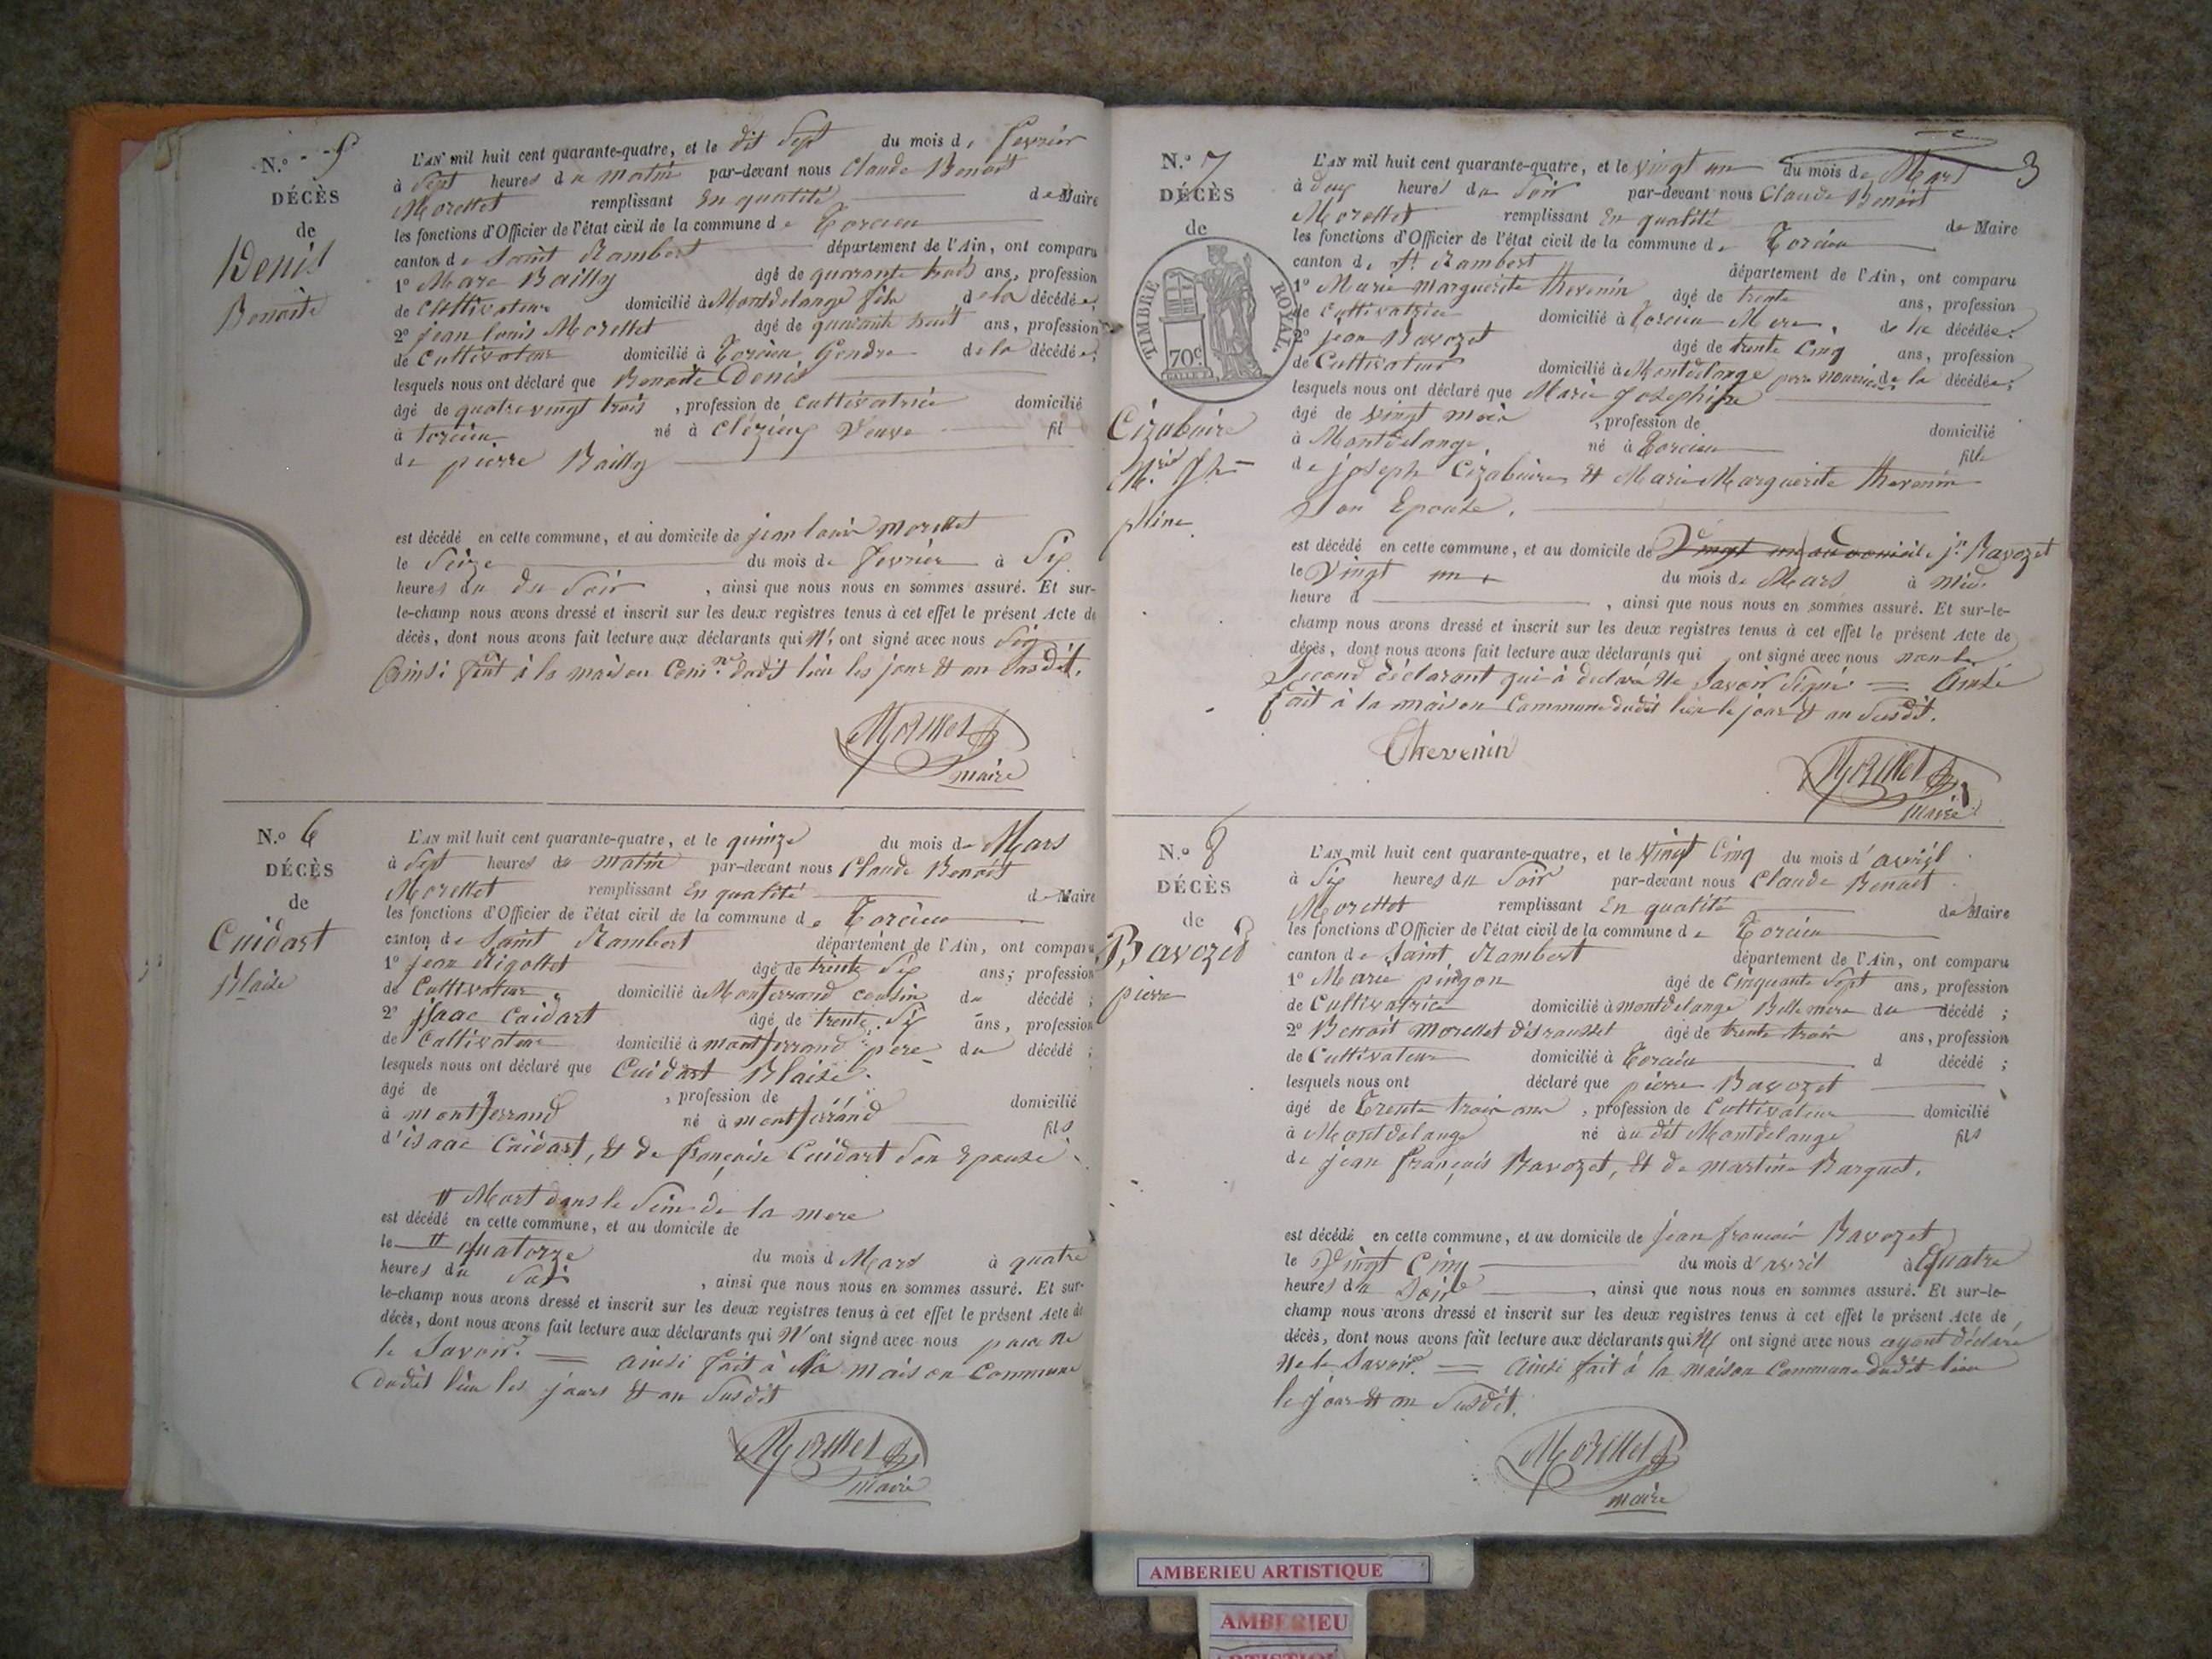 N.º 5
DÉCÈS
de
Denis
Benoite
L'AN mil huit cent quarante-quatre, et le dit Sept du mois de fevrier
à Sept heures du matin par-devant nous Claude Benoit
Morettet remplissant En qualité de Maire
les fonctions d'Officier de l'état civil de la commune de Torcieu
canton de Saint Rambert département de l'Ain, ont comparu
1º Marc Bailly âgé de quarante trois ans, profession
de Cultivateur domicilié à Montdelange fils de la décédée;
2º jean louis Morettet âgé de quarante huit ans, profession
de Cultivateur domicilié à Torcieu Gendre de la décédée;
lesquels nous ont déclaré que Benoite Denis
âgé de quatre vingt trois, profession de cultivatrice domicilié
à torcieu né à clézieu Veuve fil
de pierre Bailly
est décédé en cette commune, et au domicile de jean louis morettet
le Seize du mois de fevrier à Six
heures du du Soir, ainsi que nous nous en sommes assuré. Et sur-
le-champ nous avons dressé et inscrit sur les deux registres tenus à cet effet le présent Acte de
décès, dont nous avons fait lecture aux déclarants qui N' ont signé avec nous
Ainsi fait à la maison Com.ne dudit lieu les jour et an Susdit.
Morettet
maire
N.º 6
DÉCÈS
de
Cuidart
Blaise
L'AN mil huit cent quarante-quatre, et le quinze du mois de Mars
à Sept heures du matin par-devant nous Claude Benoit
Morettet remplissant En qualité de Maire
les fonctions d'Officier de l'état civil de la commune de Torcieu
canton de Saint Rambert département de l'Ain, ont comparu
1º jean Rigottet âgé de trente Six ans; profession
de Cultivateur domicilié à Montferrand cousin du décédé;
2º jsaac Cuidart âgé de trente Six ans, profession
de Cultivateur domicilié à montferrand père du décédé;
lesquels nous ont déclaré que Cuidart Blaise.
âgé de , profession de domicilié
à montferrand né à montferrand fils
d'isaac Cuidart, et de françoise Cuidart Son Epouse.
Mort dans le Sein de la mere
est décédé en cette commune, et au domicile de
le quatorze du mois d Mars à quatre
heures du Soir, ainsi que nous nous en sommes assuré. Et sur-
le-champ nous avons dressé et inscrit sur les deux registres tenus à cet effet le présent Acte de
décès, dont nous avons fait lecture aux déclarants qui N' ont signé avec nous pour ne
le Savoir. = ainsi fait à la maison Commune
dudit lieu les jours et an Susdit
Morettet
maire
3
N.º 7
DÉCÈS
de
TIMBRE ROYAL.
70c
Cizabuire
M.rie Jh
phine
L'AN mil huit cent quarante-quatre, et le vingt un du mois de Mars
à deux heures du Soir par-devant nous Claude Benoit
Morettet remplissant En qualité de Maire
les fonctions d'Officier de l'état civil de la commune de Torcieu
canton de St. Rambert département de l'Ain, ont comparu
1º Marie Marguerite thevenin âgé de trente ans, profession
de Cultivatrice domicilié à torcieu Mere, de la décédée.
2º jean Bavozet âgé de trente Cinq ans, profession
de Cultivateur domicilié à Montdelange pere nouricier de la décédée;
lesquels nous ont déclaré que Marie Josephine
âgé de vingt mois, profession de domicilié
à Montdelange né à Torcieu fille
de joseph Cizabuire, et Marie Marguerite thevenin
Son Epouse.
est décédé en cette commune, et au domicile de Vingt un au domicile jn. Bavozet
le Vingt un du mois de Mars à midi
heure d , ainsi que nous nous en sommes assuré. Et sur-le-
champ nous avons dressé et inscrit sur les deux registres tenus à cet effet le présent Acte de
décès, dont nous avons fait lecture aux déclarants qui ont signé avec nous non le
Second déclarant qui à declaré Ne Savoir Signé = Ainsi
fait à la maison Commune dudit lieu le jour et an Susdit.
Thevenin
Morettet
maire
N.º 8
DÉCÈS
de
Bavozet
pierre
L'AN mil huit cent quarante-quatre, et le Vingt Cinq du mois d'avril
à Six heures du Soir par-devant nous Claude Benoit
Morettet remplissant En qualité de Maire
les fonctions d'Officier de l'état civil de la commune de Torcieu
canton de Saint Rambert département de l'Ain, ont comparu
1º Marie pingon âgé de Cinquante Sept ans, profession
de Cultivatrice domicilié à montdelange Belle mere du décédé;
2º Benoit Morettet âgé de trente trois ans, profession
de Cultivateur domicilié à Torcieu d décédé;
lesquels nous ont déclaré que pierre Bavozet
âgé de Trente trois ans, profession de Cultivateur domicilié
à Montdelange né au dit Montdelange fils
de jean françois Bavozet, et de martine Barquet.
est décédé en cette commune, et au domicile de jean francois Bavozet
le Vingt Cinq du mois d'avril à Quatre
heures du Soir, ainsi que nous nous en sommes assuré. Et sur-le-
champ nous avons dressé et inscrit sur les deux registres tenus à cet effet le présent Acte de
décès, dont nous avons fait lecture aux déclarants qui N' ont signé avec nous ayant déclaré
Ne le Savoir. = Ainsi fait à la maison Commune dudit lieu
le jour et an Susdit.
Morettet
maire
AMBERIEU ARTISTIQUE
AMBERIEU
ARTISTIQUE